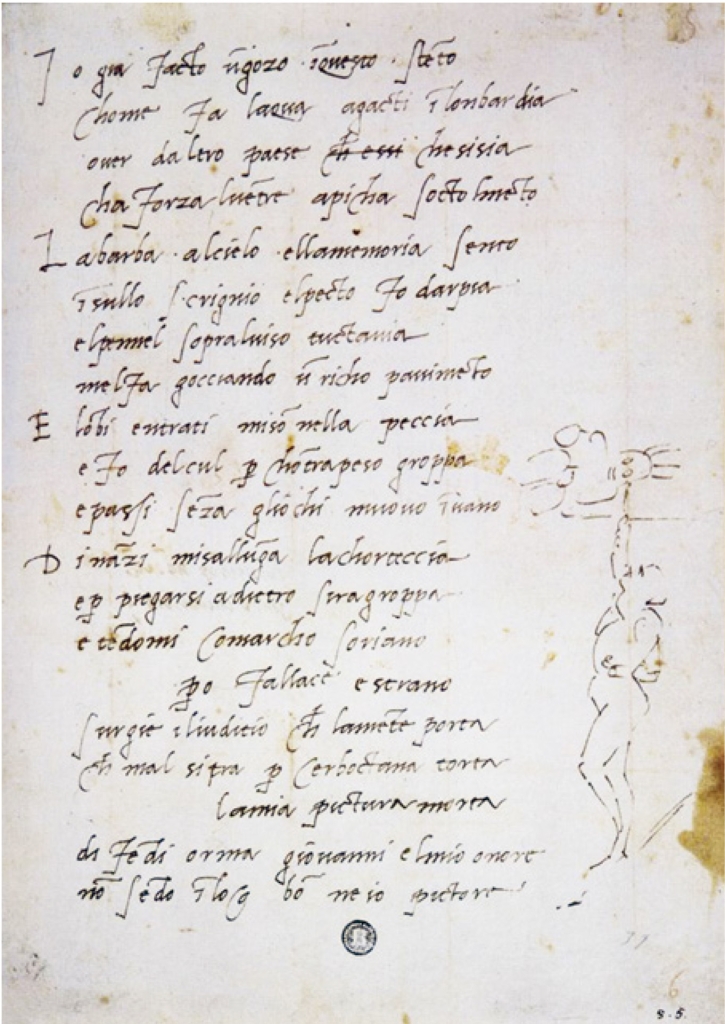 I o gia facto ũgozo ĩquesto stẽto
chome fa laqua agacti ĩ lonbardia
over dalero paese ch̃ essi chesisia
cha forza lvẽtre apicha socto lmẽto
L abarba alcielo ellamemoria sento
ĩsullo scrignio elpecto fo darpia
elpennel sopralviso tuctavia
melfa gocciando ũ richo pavimẽto
E lõbi entrati misõ nella peccia
e fo delcul p̱ chõtrapeso groppa
epassi sẽza gliochi muovo ĩvano
D inãzi misallũga lachorteccia
ep̱ piegarsi adietro siragroppa
e tẽdomi comarcho soriano
p̱o fallace e strano
surgie iliudicio ch̃ lamẽte porta
ch̃ mal sitra p̱ cerboctana torta
lamia pictura morta
di fẽdi orma giovanni elmio onore
nõ sẽdo ĩloq bõ ne io pictore
6
8.5.